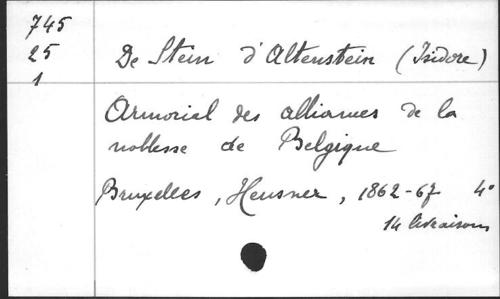 745
25
1
De Stein d'Altenstein (Isidore)
Armorial des alliances de la
noblesse de Belgique
Bruxelles, Heusner, 1862-67 4°
14 livraisons